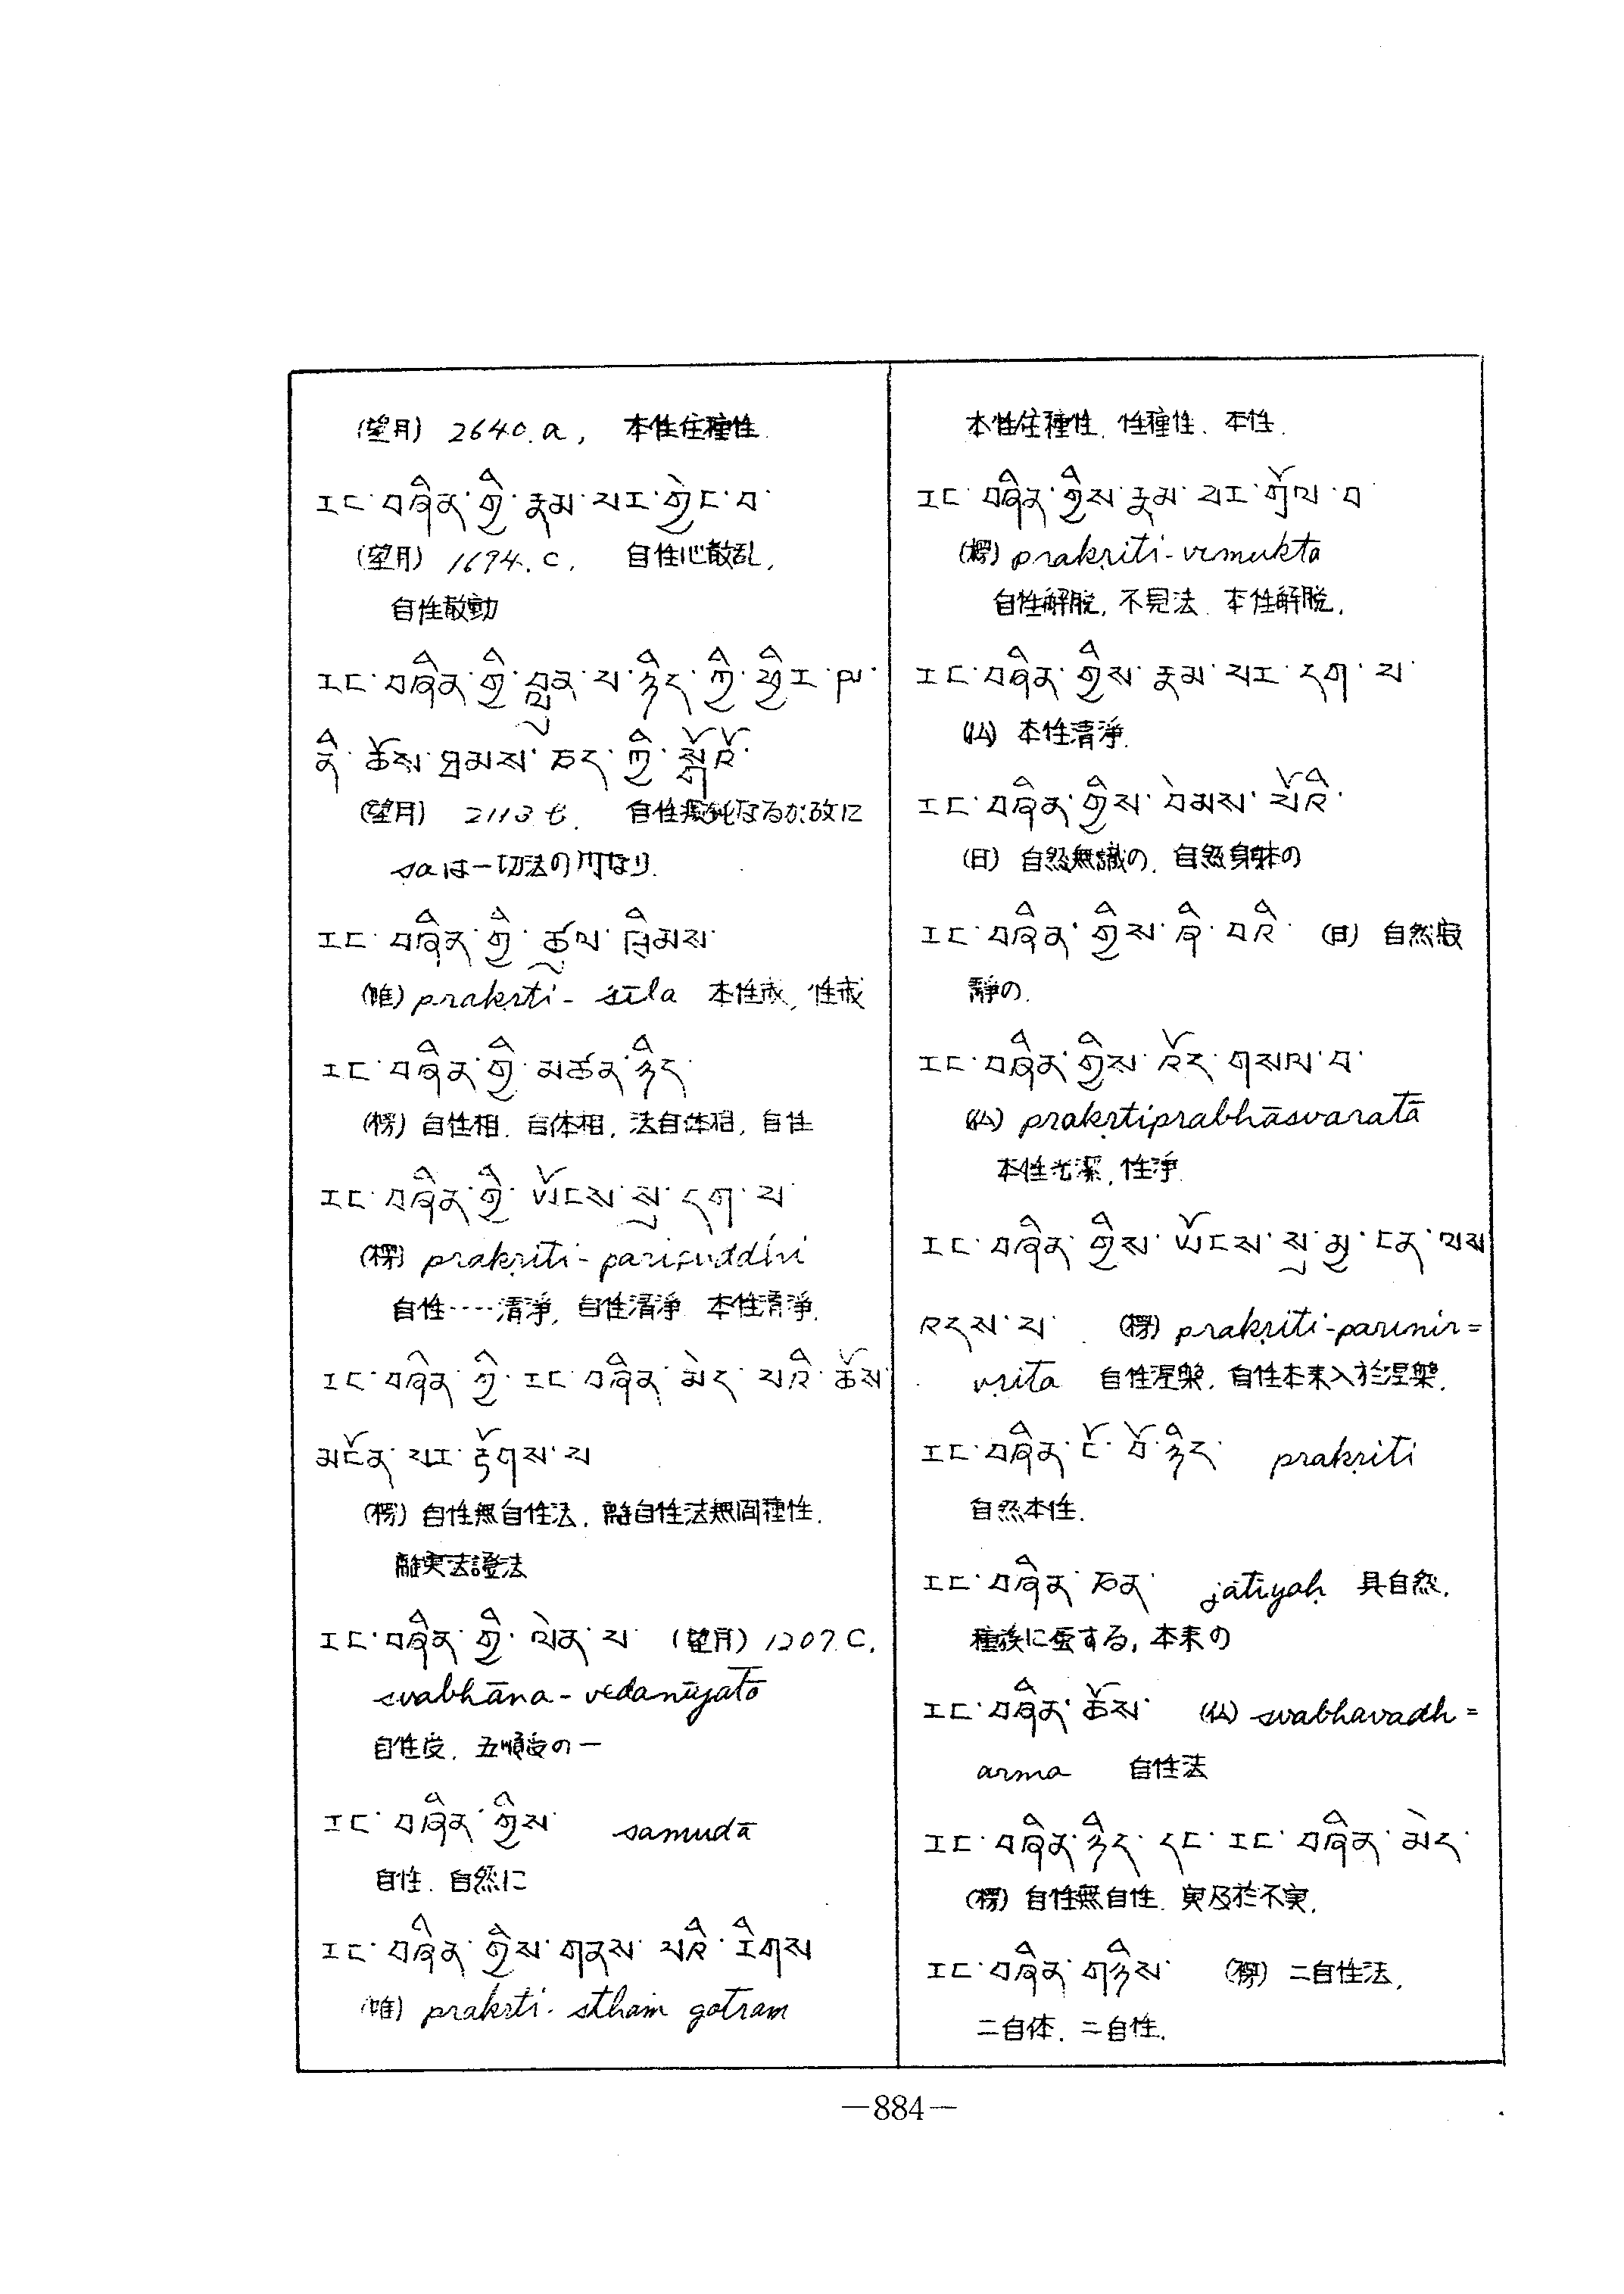 (望月) 2640.a, 本性住種性.
རང་བཞིན་གྱི་རྣམ་པར་གྱེང་བ་
(望月) 1694.c, 自性心散乱,
自性散動
རང་བཞིན་གྱི་ པ་ཉིད་ཀྱི་ཕྱིར་
ནི་ཆོས་ཐམས་ཅད་ཀྱི་སྒོའོ་
(望月) 2113.b. 自性癡鈍なるが故に
ṣaは一切法の門なり.
རང་བཞིན་གྱི་ཚུལ་ཁྲིམས་
(唯) prakṛti-śīla 本性戒, 性戒
རང་བཞིན་གྱི་མཚན་ཉིད་
(楞) 自性相. 自体相, 法自体相, 自性
རང་བཞིན་གྱི་ཡོངས་སུ་དག་པ་
(楞) prakṛiti-pariçuddhi
自性‥‥清淨, 自性清淨 本性清淨.
རང་བཞིན་གྱི་རང་བཞིན་མེད་པའི་ཆོས་
མངོན་པར་རྟོགས་པ
(楞) 自性無自性法, 離自性法無間種性.
離実法證法
རང་བཞིན་གྱི་ལེན་པ་ (望月) 1207.C,
svabhāna-vedanīyatō
自性受. 五順受の一
རང་བཞིན་གྱིས་ samudā
自性. 自然に
རང་བཞིན་གྱིས་གནས་པའི་རིགས
(唯) prakṛti-sthaṁ gotram
本性住種性. 性種性. 本性.
རང་བཞིན་གྱིས་རྣམ་པར་གྲོལ་བ
(楞) prakṛiti-vimukta
自性解脱, 不見法. 本性解脱,
རང་བཞིན་གྱིས་རྣམ་པར་དག་པ་
(仏) 本性清淨.
རང་བཞིན་གྱིས་སེམས་པོའི་
(日) 自然無識の. 自然身躰の
རང་བཞིན་གྱིས་ཞི་བའི་ (日) 自然寂
靜の.
རང་བཞིན་གྱིས་འོད་གསལ་བ་
(仏) prakṛtiprabhāsvaratā
本性光潔, 性淨.
རང་བཞིན་གྱིས་ཡོངས་སུ་མྱ་ངན་ལས
འདས་པ་ (楞) prakṛiti-parinir=
vṛita 自性涅槃. 自性本来入於涅槃.
རང་བཞིན་ངོ་བོ་ཉིད་ prakṛiti
自然本性.
རང་བཞིན་ཅན་ jātīyaḥ 具自然,
種族に する, 本来の
རང་བཞིན་ཆོས་ (仏) svabhavadh=
arma 自性法
རང་བཞིན་ཉིད་དང་རང་བཞིན་མེད་
(楞) 自性無自性. 実及於不実.
རང་བཞིན་གཉིས་ (楞) 二自性法,
二自体. 二自性.
—884—